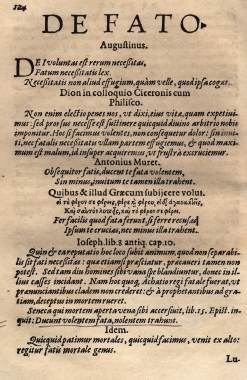 124
DE FATO
Augustinus.
DEI voluntas est rerum necessitas,
Fatum necessitatis lex.
Necessitatis non aliud effugium, quàm velle, quod ipsa cogat.
Dion in colloquio Ciceronis cum
Philisco.
Non enim electio penes nos, vt dixi, eius vita, quam expeti-
mus: sed prorsus necesse est sustinere quicquid diuino arbitrio nobis
imponitur. Hoc si facimus volentes, non consequetur dolor: sin inui-
ti, nec fatalis necessitatis vllam partem effugiemus, & quod maxi-
mum est malum, id insuper acquiremus, vt frustrà excruciemur.
Antonius Muret.
Obsequitor fatis, ducent te fata volentem,
Sin minus, inuitum te tamen illa trahent.
Quibus & illud Græcum subijcere volui.
Fer facilis quod fata ferunt, si ferre recusas
Ipsum te crucias, nec minus illa trahent.
Ioseph. lib. 8 antiq. cap. 10.
Quin & careputatio hoc loco subit animum, quod non separabi-
lis sit fati necessitas: quæ etiamsi præsciatur, præcaueri tamen non
potest. Sed tam diu homines sibi vana spe blandiuntur, donec in il-
lius casses incidant. Nam hoc quoq, Achabo regi fatale fuerat, vt
pranuntianti suam cladem non crederet: & à prophetis ad gra-
tiam, deceptus in mortem rueret.
Seneca qui mortem aperta vena sibi accersuit, lib. 15. Epist. in-
quit: Ducunt volentem fata, nolentem trahunt.
Idem.
Quicquid patimur mortales, quicquid facimus, venit ex alto:
regitur fatis mortale genus.
Lu-